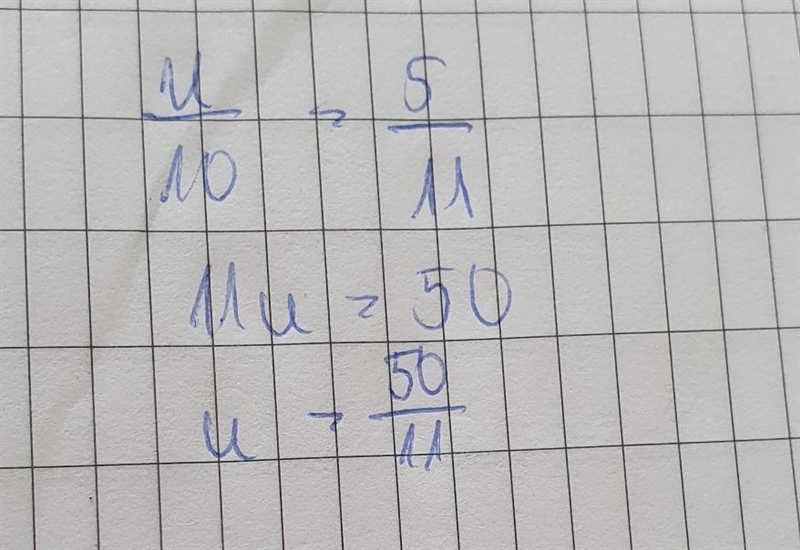 u/10 = 5/11
11u = 50
u = 50/11